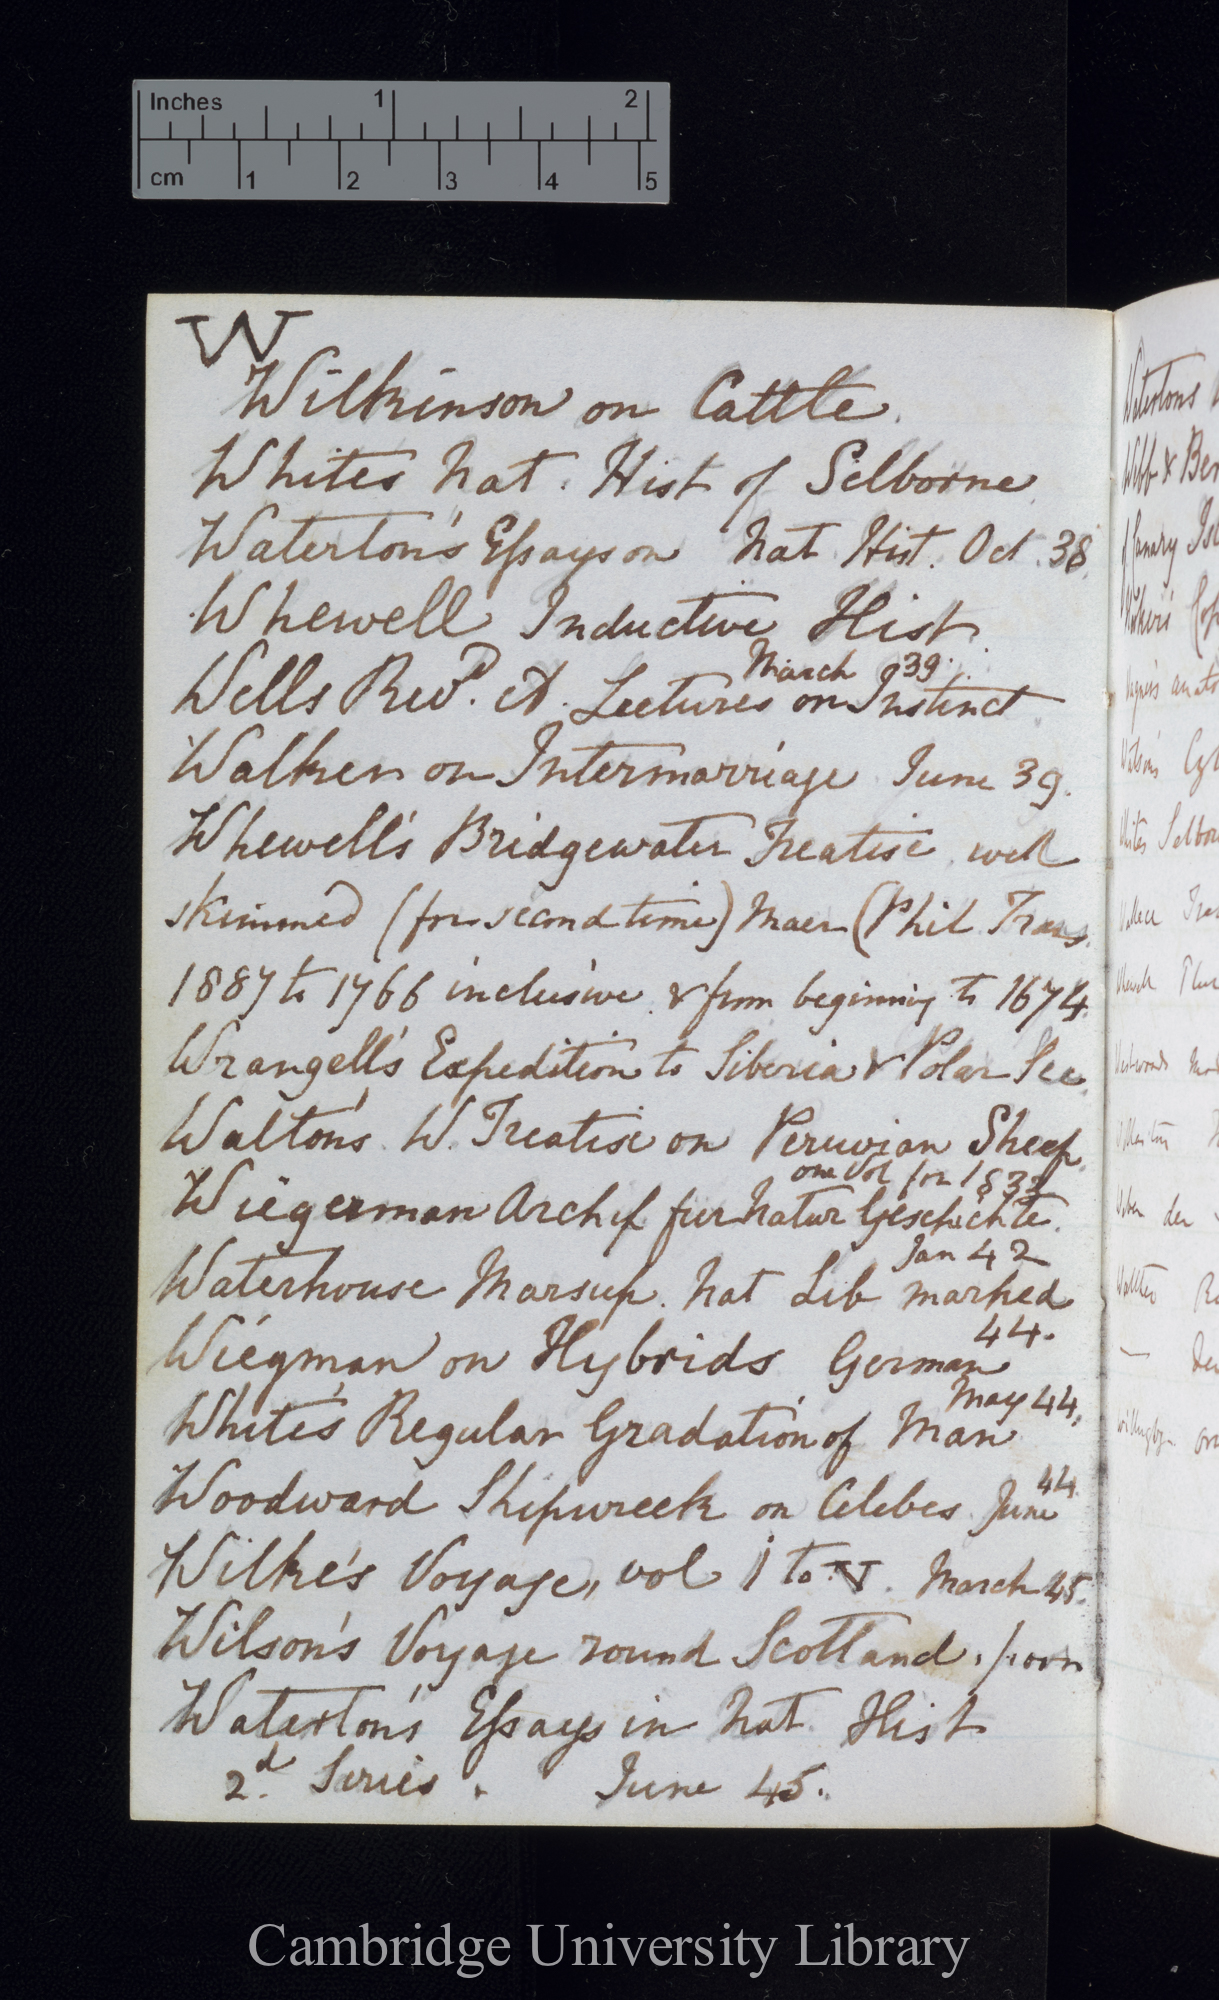 Inches 1 2
cm 1 2 3 4 5
W
Wilkinson on Cattle.
Whites Nat. Hist of Selborne
Waterton's Essays on Nat Hist. Oct. 38.
Whewell Inductive Hist.
March 39.
Wells Revd. A. Lectures on Instinct
Walker on Intermarriage June 39.
Whewell's Bridgewater Treatise well
skimmed (for second time) Maer (Phil. Trans.
1887 to 1766 inclusive & from beginning to 1674.
Wrangell's Expedition to Siberia & Polar See.
Walton's W. Treatise on Peruvian Sheep.
one Vol for
Wiegerman Archif fur Natur Geschichte.
Jan 42
Waterhouse Marsup. Nat Lib marked
44.
Wiegman on Hybrids German
May 44.
White's Regular Gradation of Man
44.
Woodward Shipwreck on Celebes June
Wilke's Voyage, vol 1 to V. March 45.
Wilson's Voyage round Scotland. poor
Waterton's Essays in Nat Hist
2d. Series. June 45.
Watertons
Webb & Ber
Canary Isl
Cambridge University Library